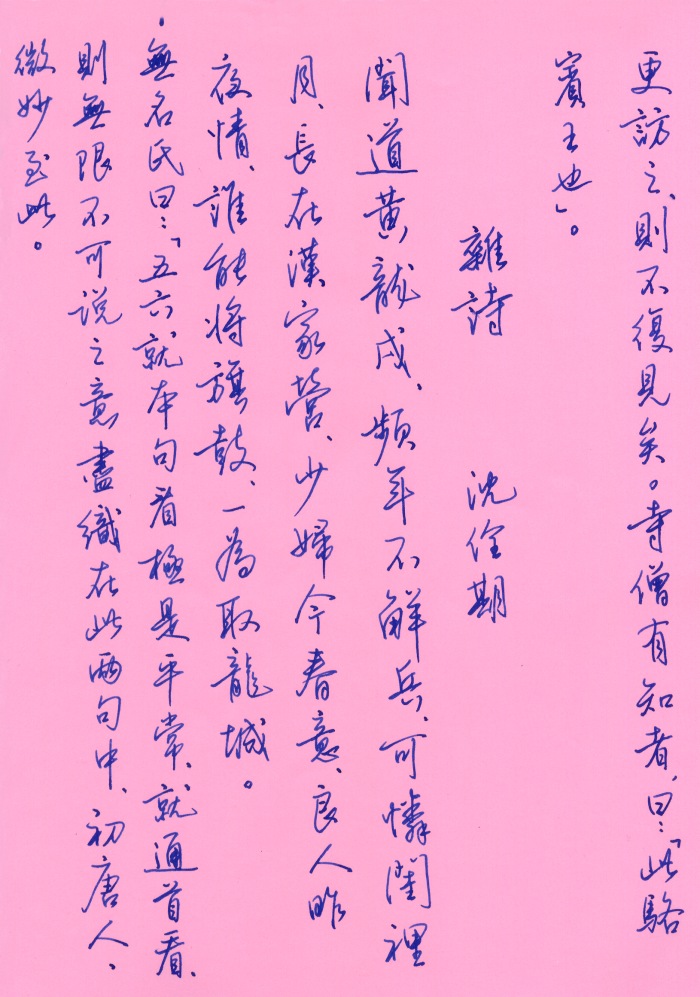 更訪之、則不復見矣。寺僧有知者、曰：「此駱
賓王也」。
雜詩　沈佺期
聞道黃龍戍、頻年不解兵、可憐閨裡
月、長在漢家營、少婦今春意、良人昨
夜情、誰能將旗鼓、一為取龍城。
·無名氏曰：「五六就本句看極是平常、就通首看、
則無限不可說之意盡織在此兩句中、初唐人、
微妙至此。